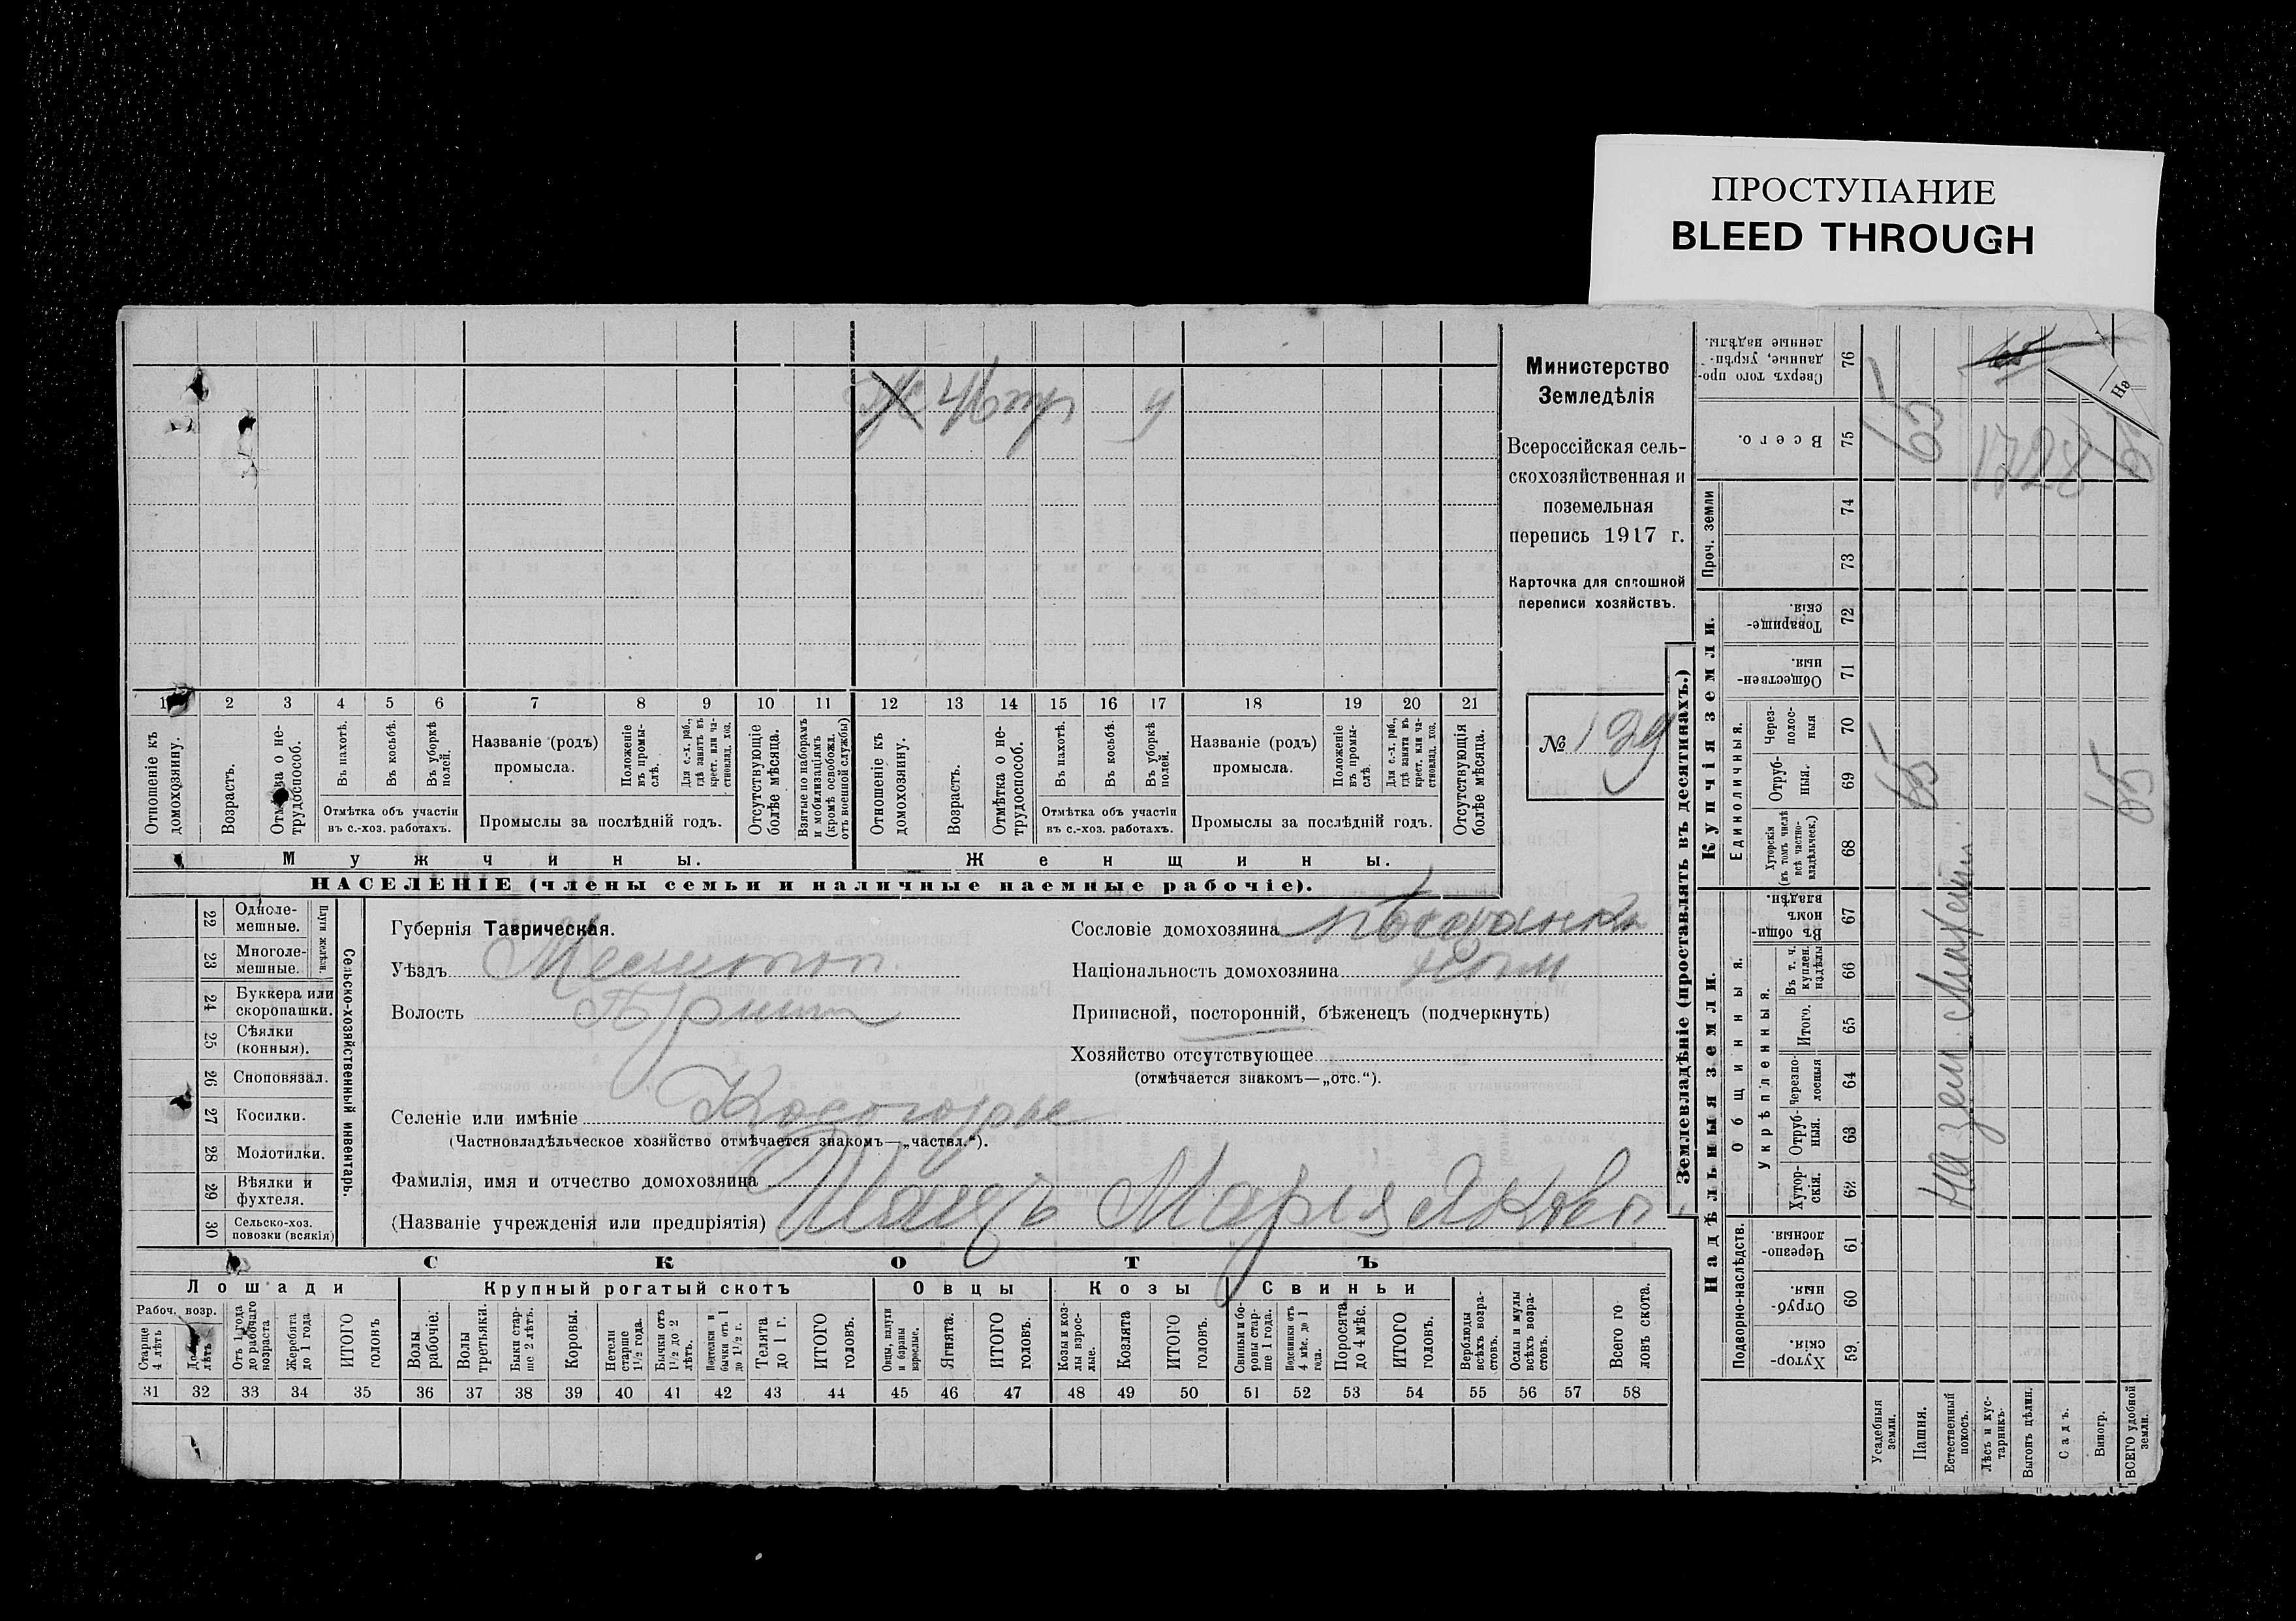 ПРОСТУПАНИЕ
BLEED THROUGH
Министерство
Земледѣлія
Всероссійская сель-
скохозяйственная и
поземельная
перепись 1917 г.
Карточка для сплошной
переписи хозяйствъ.
№ 129
1 2 3 4 5 6 7 8 9 10 11 12 13 14 15 16 17 18 19 20 21
Отношеніе къ домохозяину.
Возрастъ.
Отмѣтка о не-трудоспособ.
Въ пахотѣ.
Въ косьбѣ.
Въ уборкѣ полей.
Отмѣтка объ участіи
въ с.-хоз. работахъ.
Названіе (родъ)
промысла.
Положеніе въ промы-слѣ.
Для с.-х. раб., гдѣ занятъ въ крест. или ча-стновлад. хоз.
Промыслы за послѣдній годъ.
Отсутствующіе болѣе мѣсяца.
Взятые по наборамъ и мобилизаціямъ (кромѣ освобожд. отъ военной службы)
Отношеніе къ домохозяину.
Возрастъ.
Отмѣтка о не-трудоспособ.
Въ пахотѣ.
Въ косьбѣ.
Въ уборкѣ полей.
Отмѣтка объ участіи
въ с.-хоз. работахъ.
Названіе (родъ)
промысла.
Положеніе въ промы-слѣ.
Для с.-х. раб., гдѣ занята въ крест. или ча-стновлад. хоз.
Промыслы за послѣдній годъ.
Отсутствующія болѣе мѣсяца.
Мужчины.
Женщины.
НАСЕЛЕНІЕ (члены семьи и наличные наемные рабочіе).
Сельско-хозяйственный инвентарь.
Плуги желѣзн.
22 Одноле-мешные.
23 Многоле-мешные.
24 Буккера или скоропашки.
25 Сѣялки (конныя).
26 Сноповязал.
27 Косилки.
28 Молотилки.
29 Вѣялки и фухтеля.
30 Сельско-хоз. повозки (всякія)
Губернія Таврическая.
Уѣздъ Мелитоп
Волость
Селеніе или имѣніе Косогорье
(Частновладѣльческое хозяйство отмѣчается знакомъ—„частвл.“).
Фамилія, имя и отчество домохозяина
(Названіе учрежденія или предпріятія) Марія Яковл
Сословіе домохозяина
Національность домохозяина
Приписной, посторонній, бѣженецъ (подчеркнуть)
Хозяйство отсутствующее
(отмѣчается знакомъ—„отс.“).
СКОТЪ
Лошади
Крупный рогатый скотъ
Овцы
Козы
Свиньи
Рабоч. возр.
Старше 4 лѣтъ
До 4 лѣтъ
Отъ 1 года до рабочаго возраста
Жеребята до 1 года
ИТОГО головъ
Волы рабочіе.
Волы третьяки.
Быки стар-ше 2 лѣтъ.
Коровы.
Нетели старше 1½ года.
Бычки отъ 1½ до 2 лѣтъ.
Нетелки и бычки отъ 1 до 1½ г.
Телята до 1 г.
ИТОГО головъ.
Овцы, валухи и бараны взрослые.
Ягнята.
ИТОГО головъ.
Козы и коз-лы взрос-лые.
Козлята
ИТОГО головъ.
Свиньи и бо-ровы стар-ше 1 года.
Подсвинки отъ 4 мѣс. до 1 года.
Поросята до 4 мѣс.
ИТОГО головъ.
Верблюды всѣхъ возра-стовъ.
Ослы и мулы всѣхъ возра-стовъ.
Всего го-ловъ скота.
31 32 33 34 35 36 37 38 39 40 41 42 43 44 45 46 47 48 49 50 51 52 53 54 55 56 57 58
Землевладѣніе (проставлять въ десятинахъ.)
Надѣльныя земли.
Купчія земли.
Проч. земли
Подворно-наслѣдств.
Общинныя.
Укрѣпленныя.
Единоличныя.
59 Хутор-скія.
60 Отруб-ныя.
61 Черезпо-лосныя.
62 Хутор-скія.
63 Отруб-ныя.
64 Черезпо-лосныя
65 Итого.
66 Въ т. ч. куплен. надѣлы
67 Въ общин-номъ владѣн.
68 Хуторскія (въ томъ числѣ всѣ частно-владѣльческ.)
69 Отруб-ныя.
70 Через-полос-ныя
71 Обществен-ныя.
72 Товарище-скія.
73
74
75 Всего.
76 Сверхъ того про-данные, укрѣп-ленные надѣлы.
Усадебныя земли.
Пашня. 65 65
Естественный покосъ.
Лѣсъ и кус-тарникъ.
Выгонъ цѣлин.
Садъ.
Виногр.
ВСЕГО удобной земли. 65
На зем.
1728
Не